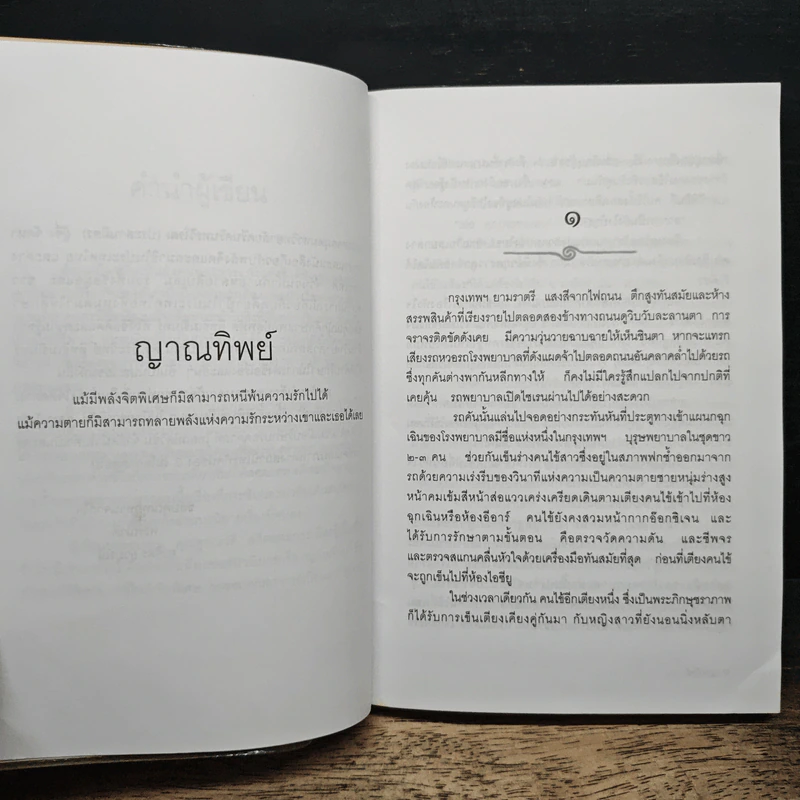 ญาณทิพย์
แม้มีพลังจิตพิเศษก็มิสามารถหนีพ้นความรักไปได้
แม้ความตายก็มิสามารถทลายพลังแห่งความรักระหว่างเขาและเธอได้เลย
๑
กรุงเทพฯ ยามราตรี แสงสีจากไฟถนน ตึกสูงทันสมัยและห้าง
สรรพสินค้าที่เรียงรายไปตลอดสองข้างทางถนนดูวิบวับละลานตา การ
จราจรติดขัดดังเคย มีความวุ่นวายฉาบฉายให้เห็นชินตา หากจะแทรก
เสียงรถหวอรถโรงพยาบาลที่ดังแผดจ้าไปตลอดถนนอันคลาคล่ำไปด้วยรถ
ซึ่งทุกคันต่างพากันหลีกทางให้ ก็คงไม่มีใครรู้สึกแปลกไปจากปกติที่
เคยคุ้น รถพยาบาลเปิดไซเรนผ่านไปได้อย่างสะดวก
รถคันนั้นแล่นไปจอดอย่างกระทันหันที่ประตูทางเข้าแผนกฉุก
เฉินของโรงพยาบาลมีชื่อแห่งหนึ่งในกรุงเทพฯ บุรุษพยาบาลในชุดขาว
๒-๓ คน ช่วยกันเข็นร่างคนไข้สาวซึ่งอยู่ในสภาพฟกช้ำออกมาจาก
รถด้วยความเร่งรีบของวินาทีแห่งความเป็นความตายชายหนุ่มร่างสูง
หน้าคมเข้มสีหน้าส่อแววเคร่งเครียดเดินตามเตียงคนไข้เข้าไปที่ห้อง
ฉุกเฉินหรือห้องอีอาร์ คนไข้ยังคงสวมหน้ากากอ๊อกซิเจน และ
ได้รับการรักษาตามขั้นตอน คือตรวจวัดความดัน และชีพจร
และตรวจสแกนคลื่นหัวใจด้วยเครื่องมือทันสมัยที่สุด ก่อนที่เตียงคนไข้
จะถูกเข็นไปที่ห้องไอซียู
ในช่วงเวลาเดียวกัน คนไข้อีกเตียงหนึ่ง ซึ่งเป็นพระภิกษุชราภาพ
ก็ได้รับการเข็นเตียงเคียงคู่กันมา กับหญิงสาวที่ยังนอนนิ่งหลับตา